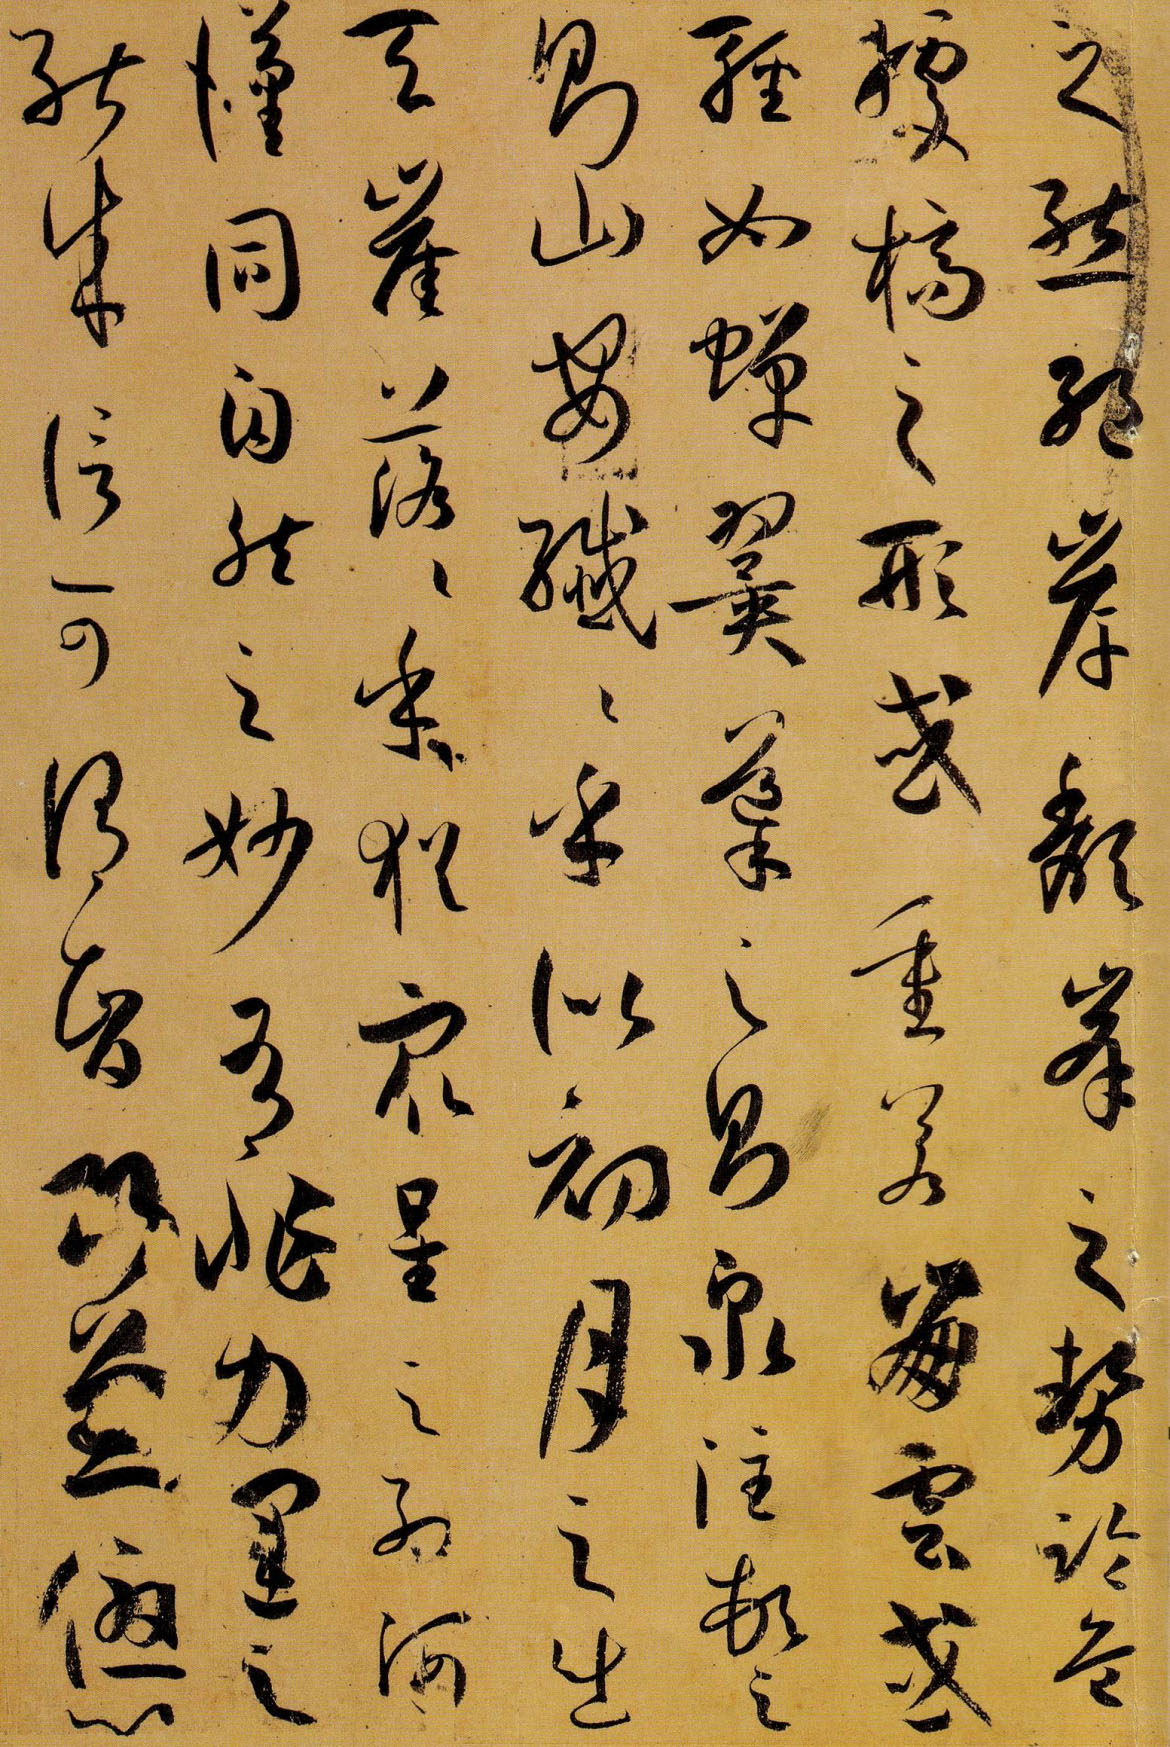 之態絕岸頹峯之勢臨危
據槁之形或重若崩雲或
輕如蟬翼導之則泉注頓之
則山安纖〻乎似初月之出
天崖落〻乎猶衆星之列河
漢同自然之妙有非力運之
能成信可謂智巧兼優心